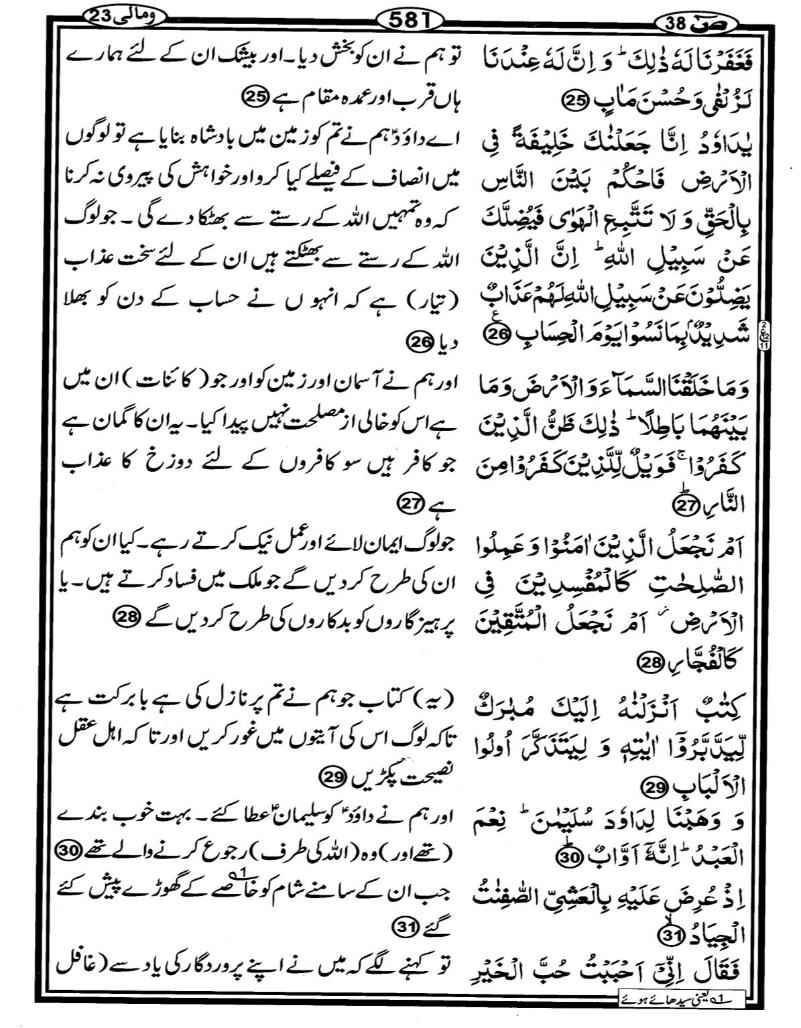 ومالی 23
581
صٓ 38
فَغَفَرْنَا لَهٗ ذٰلِكَ ؕ وَ اِنَّ لَهٗ عِنْدَنَا
لَزُلْفٰى وَ حُسْنَ مَاٰبٍ ㉕
یٰدَاوٗدُ اِنَّا جَعَلْنٰكَ خَلِیْفَةً فِی
الْاَرْضِ فَاحْكُمْ بَیْنَ النَّاسِ
بِالْحَقِّ وَ لَا تَتَّبِعِ الْهَوٰى فَیُضِلَّكَ
عَنْ سَبِیْلِ اللّٰهِ ؕ اِنَّ الَّذِیْنَ
یَضِلُّوْنَ عَنْ سَبِیْلِ اللّٰهِ لَهُمْ عَذَابٌ
شَدِیْدٌۢ بِمَا نَسُوْا یَوْمَ الْحِسَابِ ㉖ ع
وَ مَا خَلَقْنَا السَّمَآءَ وَ الْاَرْضَ وَ مَا
بَیْنَهُمَا بَاطِلًا ؕ ذٰلِكَ ظَنُّ الَّذِیْنَ
كَفَرُوْا ۚ فَوَیْلٌ لِّلَّذِیْنَ كَفَرُوْا مِنَ
النَّارِ ؕ ㉗
اَمْ نَجْعَلُ الَّذِیْنَ اٰمَنُوْا وَ عَمِلُوا
الصّٰلِحٰتِ كَالْمُفْسِدِیْنَ فِی
الْاَرْضِ ؗ اَمْ نَجْعَلُ الْمُتَّقِیْنَ
كَالْفُجَّارِ ㉘
كِتٰبٌ اَنْزَلْنٰهُ اِلَیْكَ مُبٰرَكٌ
لِّیَدَّبَّرُوْۤا اٰیٰتِهٖ وَ لِیَتَذَكَّرَ اُولُوا
الْاَلْبَابِ ㉙
وَ وَهَبْنَا لِدَاوٗدَ سُلَیْمٰنَ ؕ نِعْمَ
الْعَبْدُ ؕ اِنَّهٗۤ اَوَّابٌ ؕ ㉚
اِذْ عُرِضَ عَلَیْهِ بِالْعَشِیِّ الصّٰفِنٰتُ
الْجِیَادُ ۙ ㉛
فَقَالَ اِنِّیْۤ اَحْبَبْتُ حُبَّ الْخَیْرِ
تو ہم نے ان کو بخش دیا۔ اور بیشک ان کے لئے ہمارے
ہاں قرب اور عمدہ مقام ہے ㉕
اے داؤدؑ ہم نے تم کو زمین میں بادشاہ بنایا ہے تو لوگوں
میں انصاف کے فیصلے کیا کرو اور خواہش کی پیروی نہ کرنا
کہ وہ تمہیں اللہ کے رستے سے بھٹکا دے گی ۔ جو لوگ
اللہ کے رستے سے بھٹکتے ہیں ان کے لئے سخت عذاب
(تیار) ہے کہ انہو ں نے حساب کے دن کو بھلا
دیا ㉖
اور ہم نے آسمان اور زمین کو اور جو (کائنات) ان میں
ہے اس کو خالی از مصلحت نہیں پیدا کیا۔ یہ ان کا گمان ہے
جو کافر ہیں سو کافروں کے لئے دوزخ کا عذاب
ہے ㉗
جو لوگ ایمان لائے اور عمل نیک کرتے رہے۔ کیا ان کو ہم
ان کی طرح کر دیں گے جو ملک میں فساد کرتے ہیں۔ یا
پرہیزگاروں کو بدکاروں کی طرح کر دیں گے ㉘
(یہ) کتاب جو ہم نے تم پر نازل کی ہے بابرکت ہے
تاکہ لوگ اس کی آیتوں میں غور کریں اور تا کہ اہل عقل
نصیحت پکڑیں ㉙
اور ہم نے داؤدؑ کو سلیمانؑ عطا کئے ۔ بہت خوب بندے
(تھے اور) وہ (اللہ کی طرف) رجوع کرنے والے تھے ㉚
جب ان کے سامنے شام کو خاصے کے گھوڑے 1؎ پیش کئے
گئے ㉛
تو کہنے لگے کہ میں نے اپنے پروردگار کی یاد سے (غافل
1؎ یعنی سدھائے ہوئے